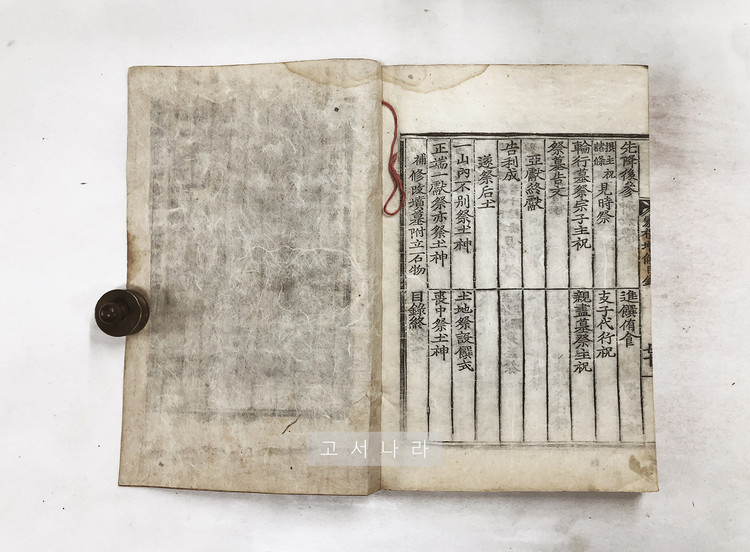 先降後參 進饌侑食
撰主祝諸條見時祭 支子代行祝
輪行墓祭宗子主祝 親盡墓祭主祝
祭墓告文
亞獻終獻
告利成
遂祭后土
一山內不別祭土神 土地祭設饌式
正端一獻祭亦祭土神 喪中祭土神
補修改墳墓附立石物 目錄終
고서나라